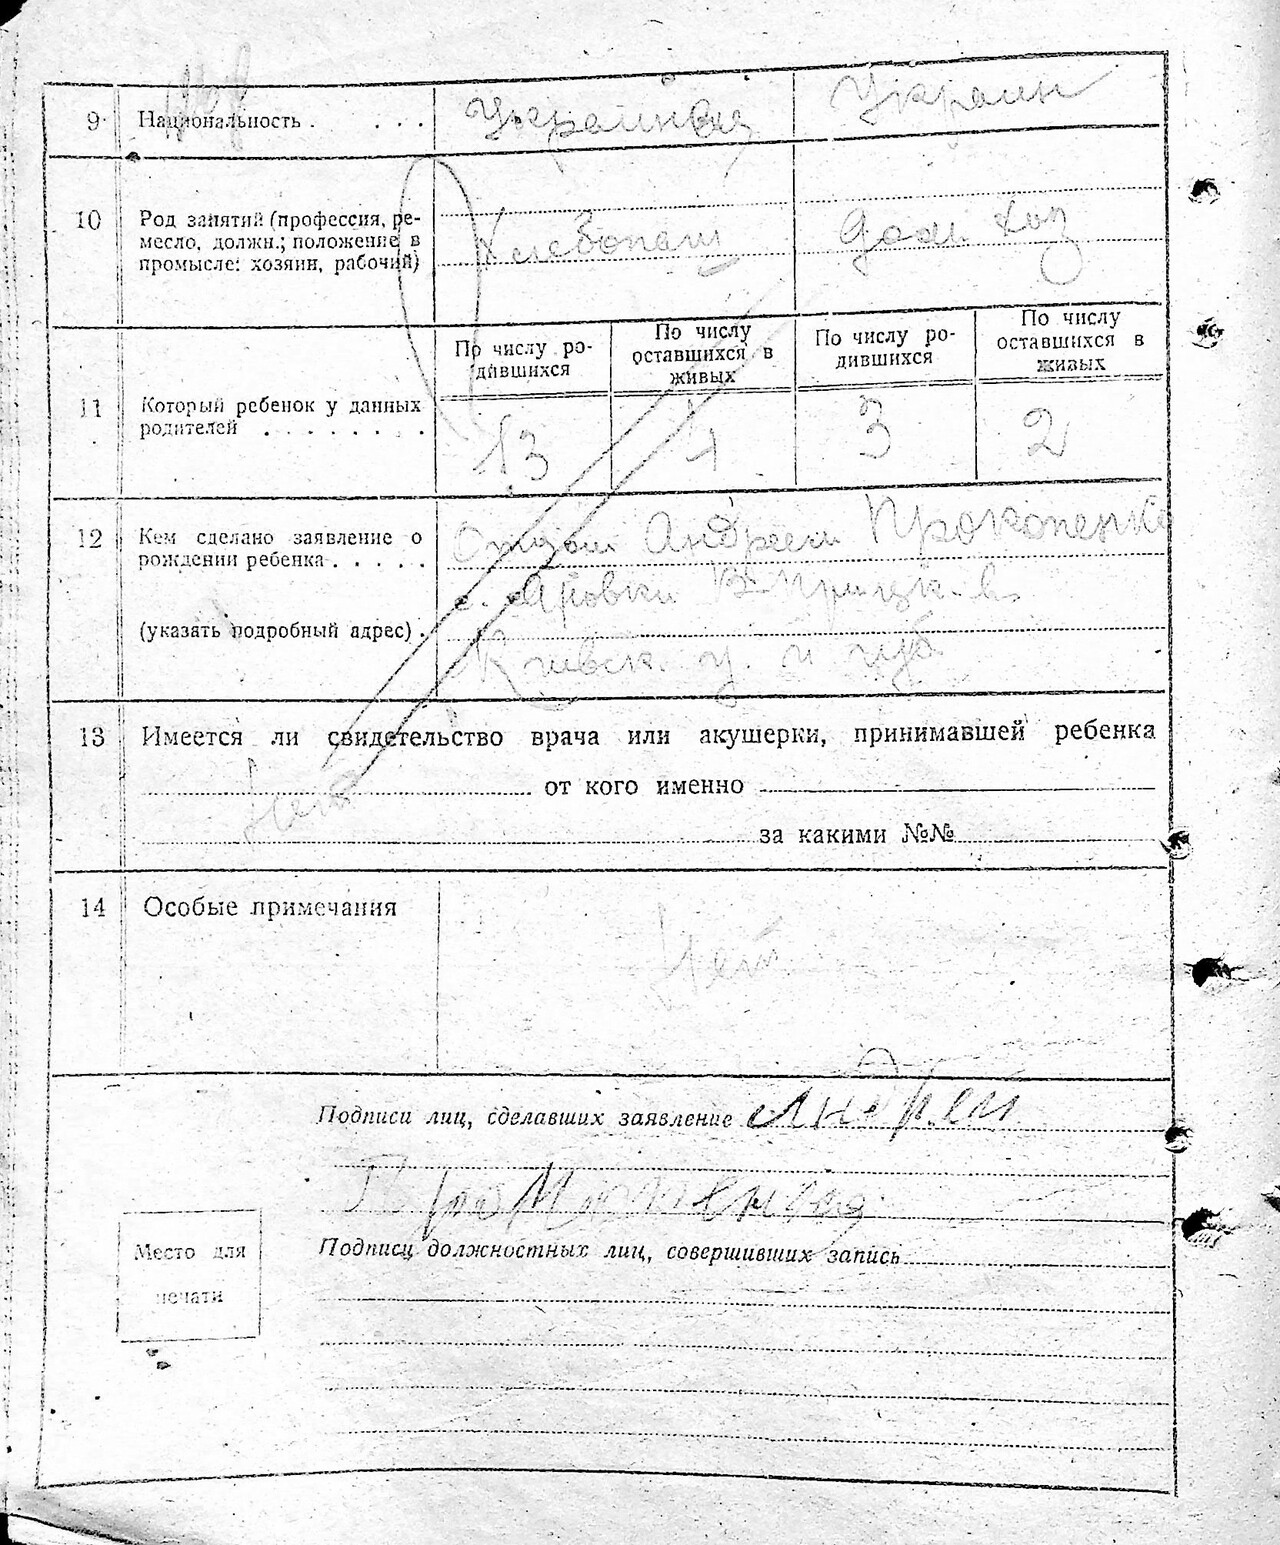 9 Национальность . . . . Украинец Украин
10 Род занятий (профессия, ре-
месло, должн.; положение в
промысле: хозяин, рабочий)
Хлебопаш Дом. хоз
11 Который ребенок у данных
родителей . . . . . . . .
По числу ро-
дившихся
По числу
оставшихся в
живых
По числу ро-
дившихся
По числу
оставшихся в
живых
3 3 2
12 Кем сделано заявление о
рождении ребенка . . . . .
(указать подробный адрес) .
Отцом Андреем Прокопенко
с.
Киевск. у. и губ
13 Имеется ли свидетельство врача или акушерки, принимавшей ребенка
Нет от кого именно
за какими №№
14 Особые примечания
Нет
Подписи лиц, сделавших заявление Андрей
Подписи должностных лиц, совершивших запись
Место для
печати